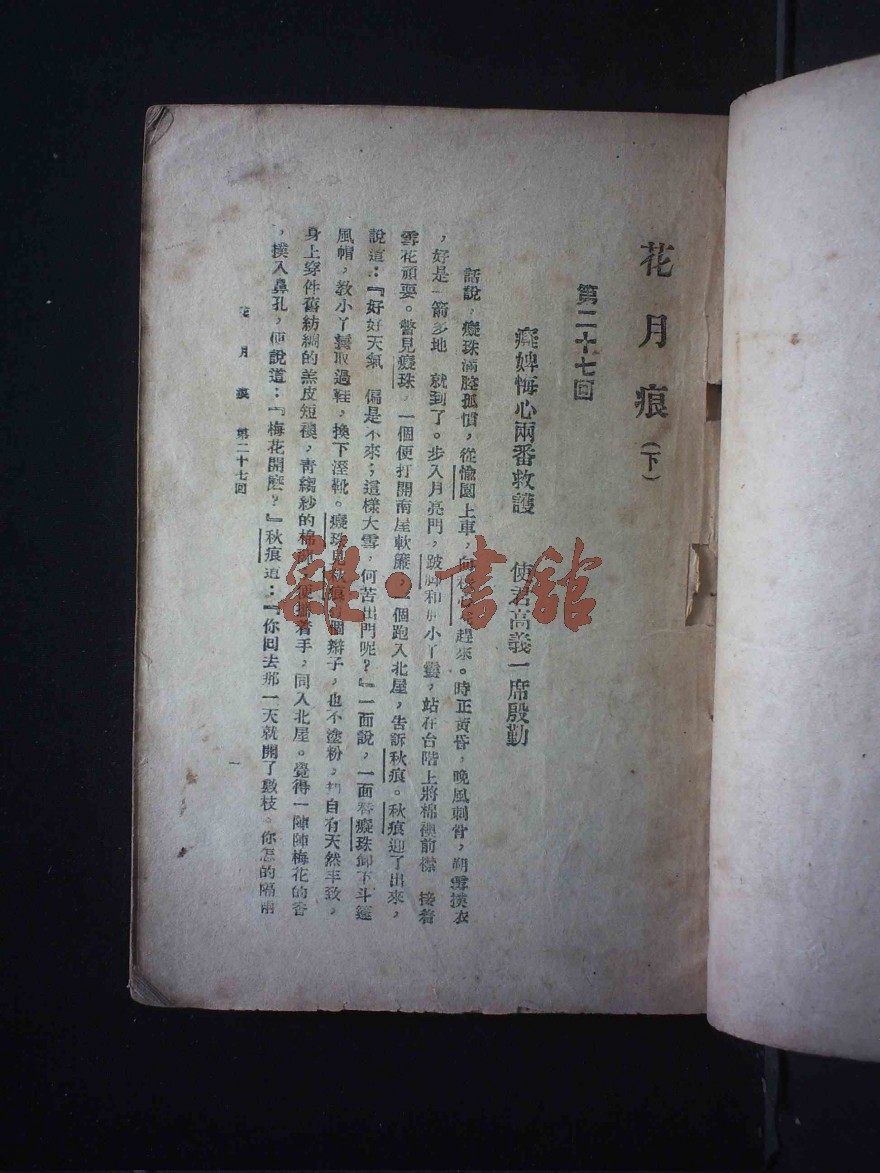 花月痕(下)
第二十七回
癡婢悔心兩番救護 使君高義一席殷勤
話說,癡珠滿腔孤憤,從愉園上車,向秋心趕來。時正黃昏,晚風刺骨,朔雪撲衣
,好是一箭多地 就到了。步入月亮門,跛腳和小丫鬟,站在台階上將棉襖前襟 接着
雪花頑耍。瞥見癡珠,一個便打開南屋軟簾,一個跑入北屋,告訴秋痕。秋痕迎了出來,
說道:『好好天氣 偏是不來;這樣大雪,何苦出門呢?』一面說,一面替癡珠卸下斗篷
風帽,教小丫鬟取過鞋,換下溼靴。癡珠見秋痕個辮子,也不塗粉,自有天然丰致,
身上穿件舊紡綢的羔皮短襖,青縐紗的棉,便着手,同入北屋。覺得一陣陣梅花的香
,撲入鼻孔,便說道:『梅花開麽?』秋痕道:『你回去那一天就開了數枝。你怎的隔兩
花月痕 第二十七回
一
雜·書館